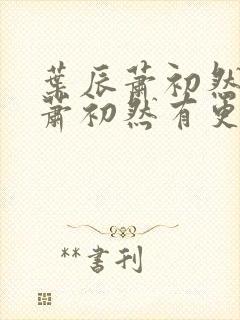 葉辰蕭初然
蕭初然有更
**書刊